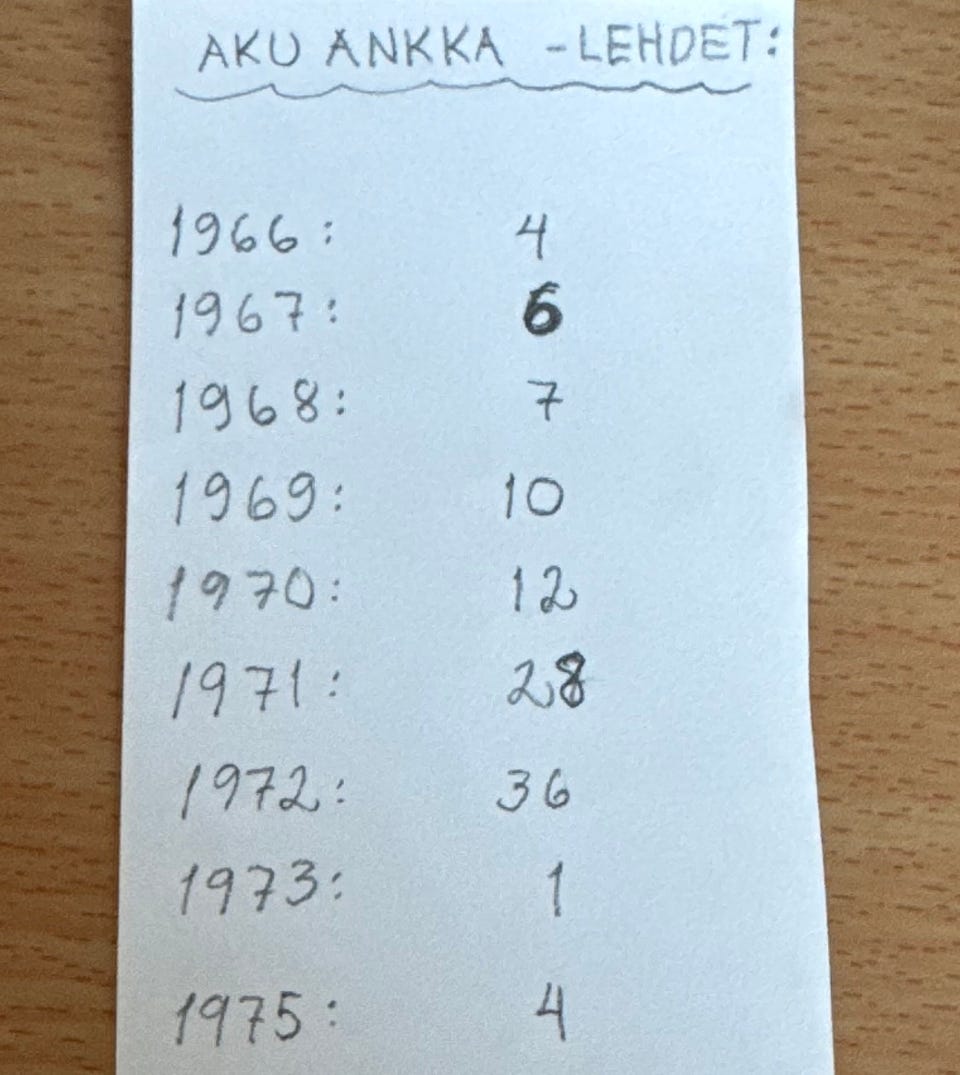 AKU ANKKA -LEHDET:
1966: 4
1967: 6
1968: 7
1969: 10
1970: 12
1971: 28
1972: 36
1973: 1
1975: 4